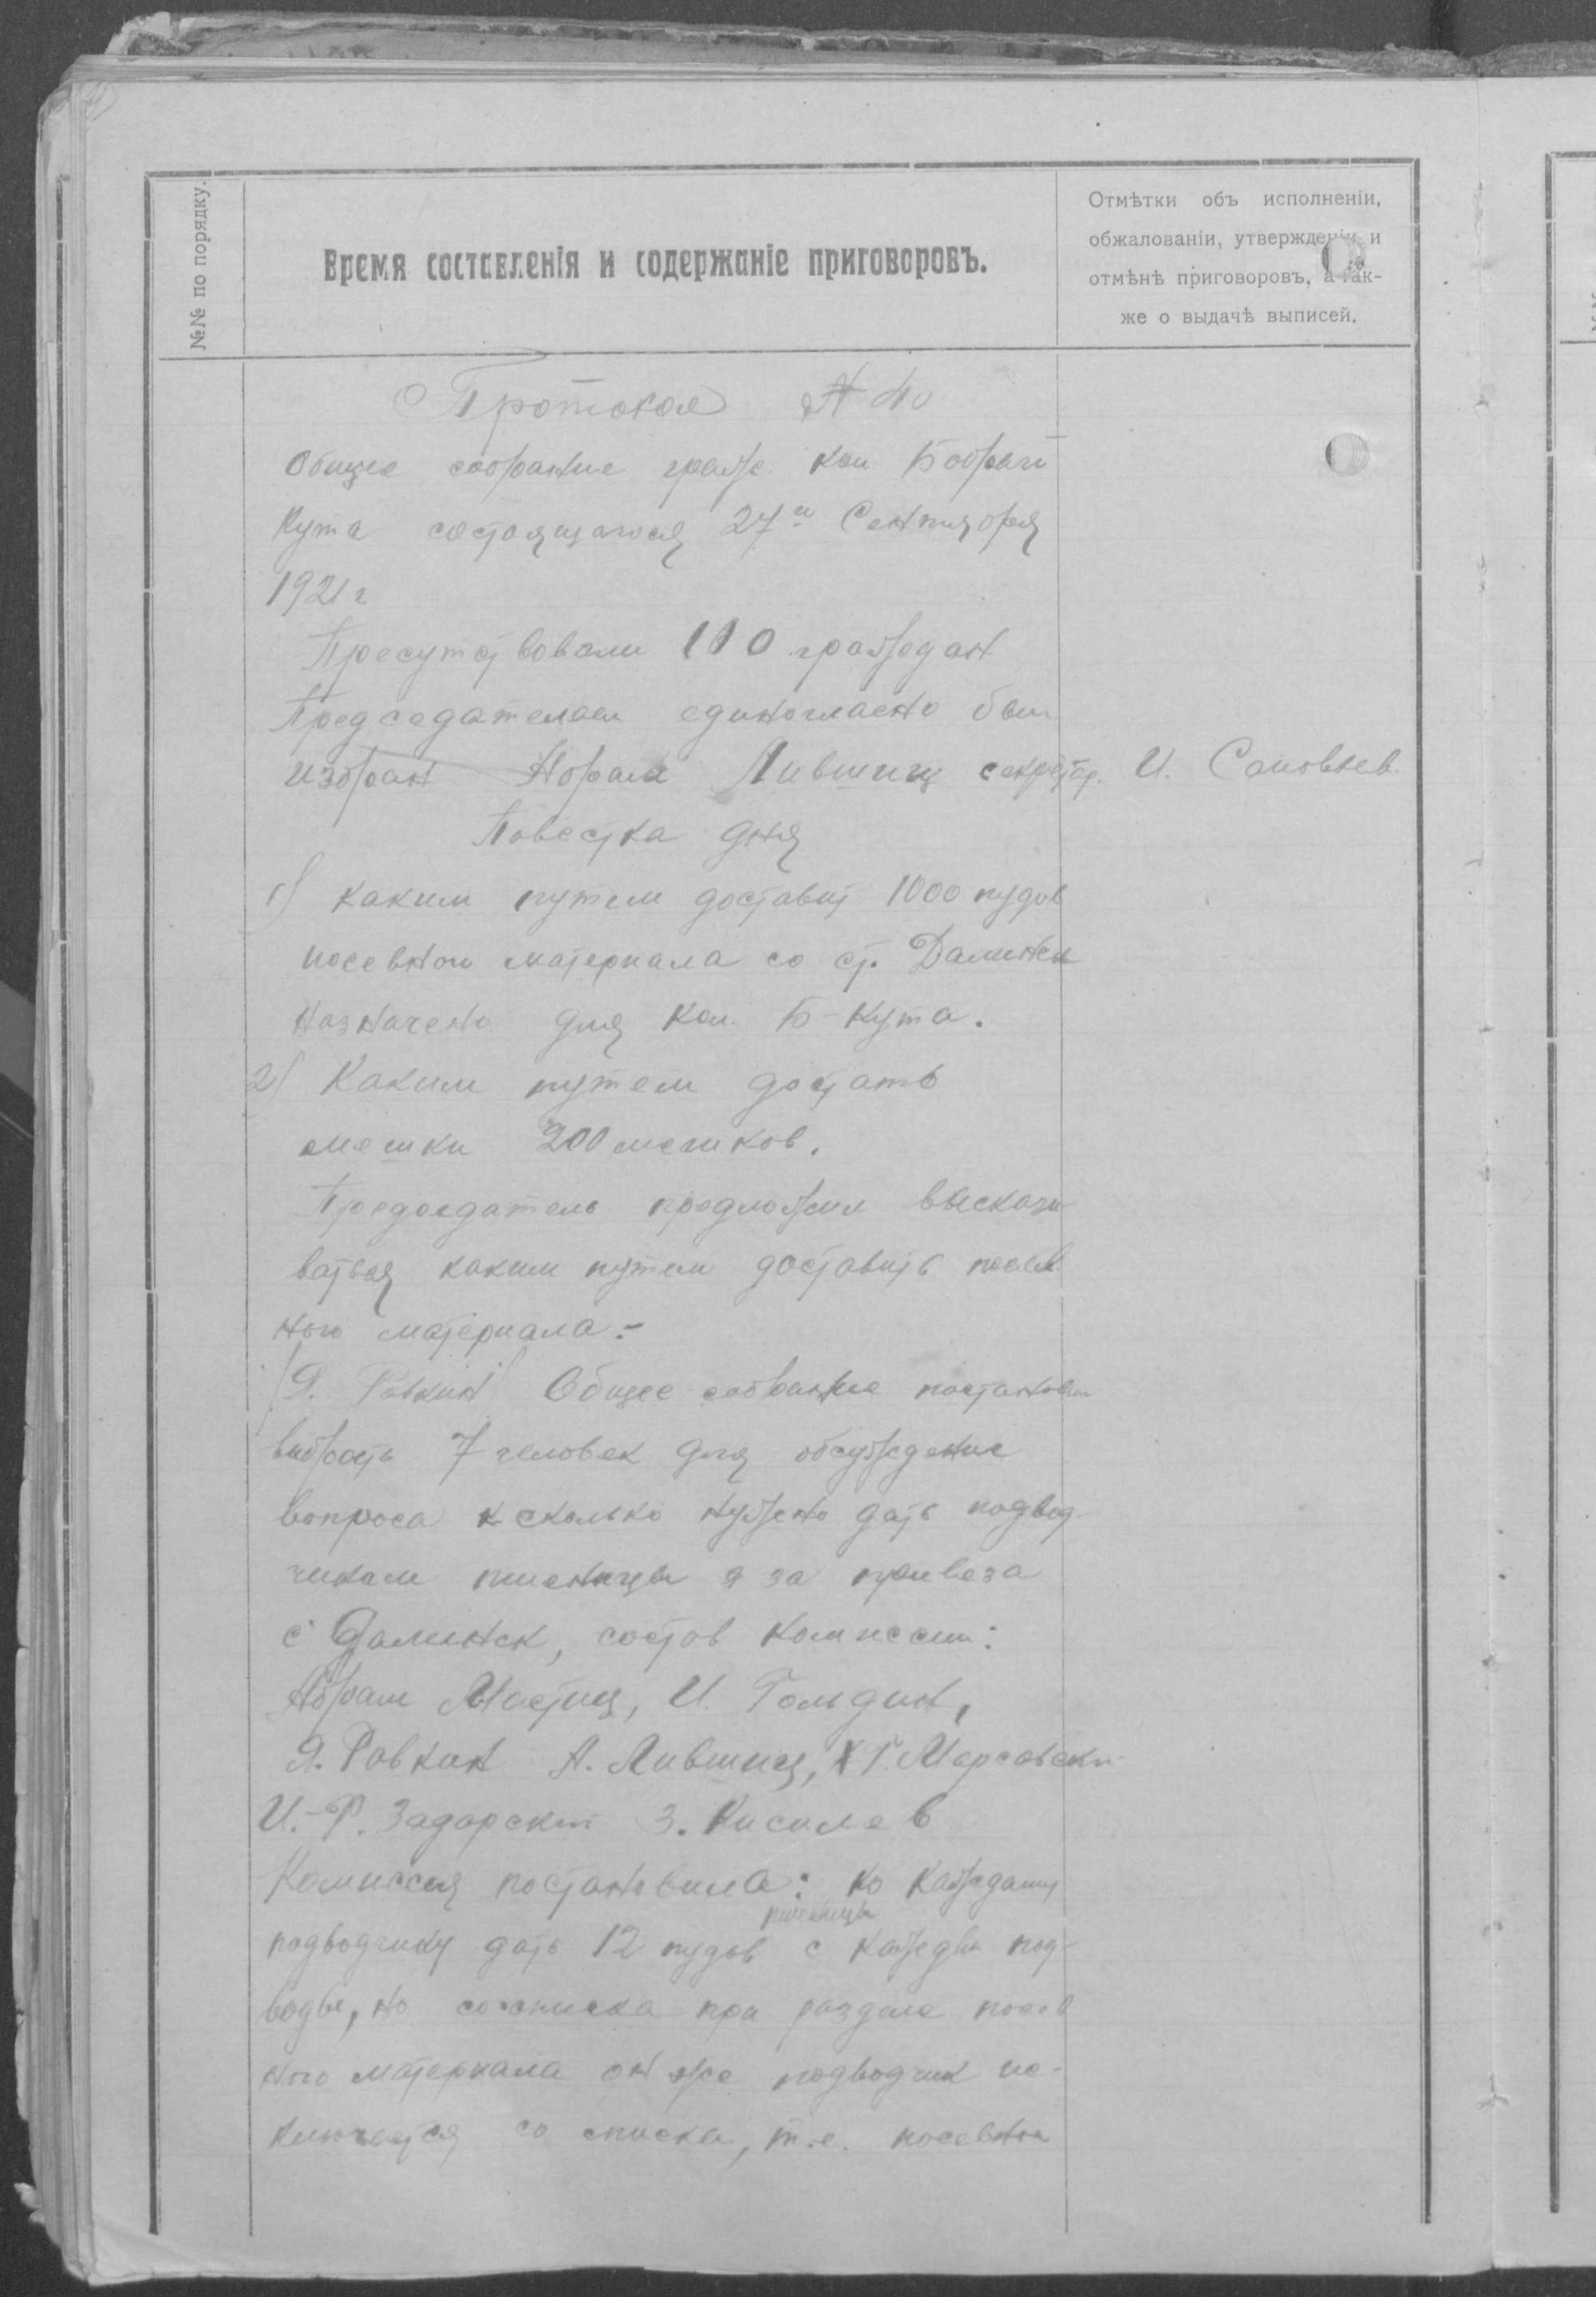 №№ по порядку.
Время составленія и содержаніе приговоровъ.
Отмѣтки объ исполненіи,
обжалованіи, утвержденіи и
отмѣнѣ приговоровъ, а так-
же о выдачѣ выписей.
Протокол № 40
Общее собрание гражд. кол. Бобровый
Кута состоящагося 27го Сентября
1921 г
Пресутствовали 110 граждан
Председателем единогласно был
избран Абрам Лившиц секретар. И. Соловьев.
Повестка дня
1) каким путем доставит 1000 пудов
посевного материала со ст. Далинск
назначено для кол. Б-Кута.
2) Каким путем достать
мешки 200 мешков.
Председатель предложил высказы-
ваться каким путем доставить посев
ного материала:-
Я. Ровкин Общее собрание постановил
выбрать 7 человек для обсуждение
вопроса сколько нужно дать подвод-
чикам пшеницы за привеза
с Далинск, состав комиссии:
Абрам Мастиц, И. Гольдин,
Я. Ровкин А. Лившиц, Г. Марсовски-
И.-Р. Задорский З. Киселев
Комиссия постановила: ко каждаму
подводчику дать 12 пудов пшеницы с кажды под-
воды, но при разделе посев
ного материала он же подводчик ис-
ключается со списка, т.е. посевной